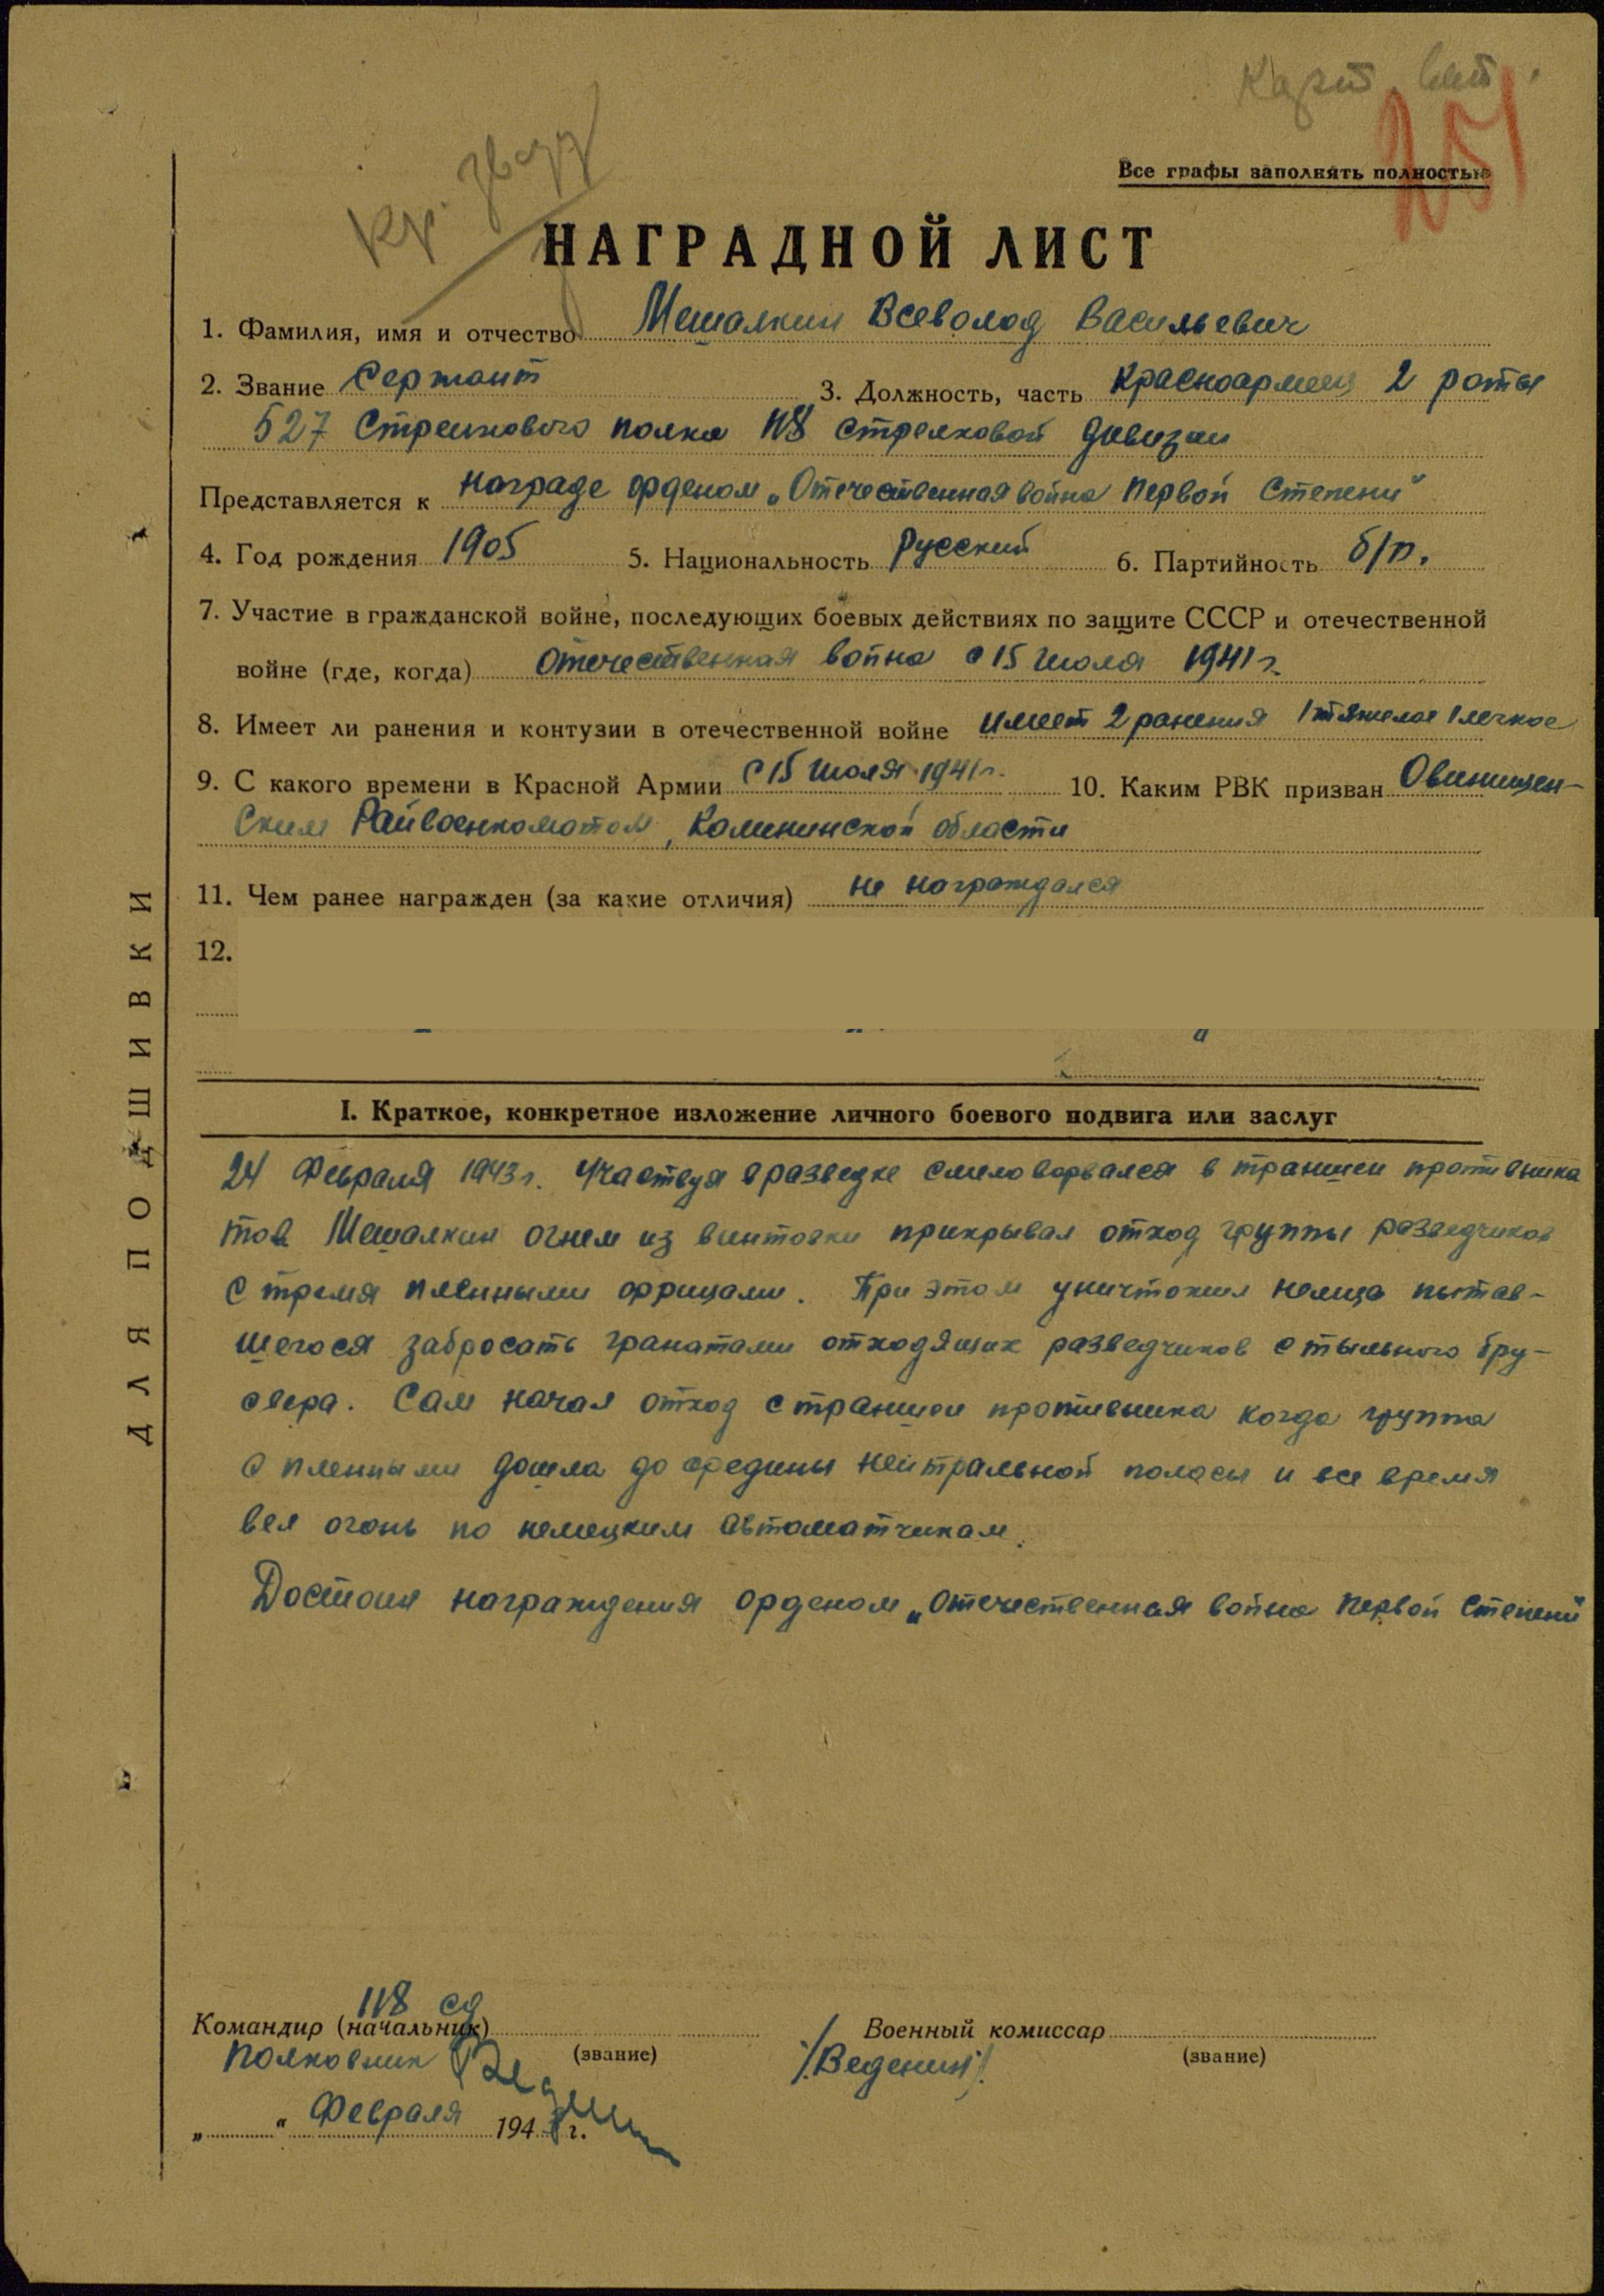 Карт. 
251
Кр. Звезд
Все графы заполнять полностью
НАГРАДНОЙ ЛИСТ
1. Фамилия, имя и отчество Мешалкин Всеволод Васильевич
2. Звание Сержант 3. Должность, часть Красноармеец 2 роты
527 Стрелкового полка 118 стрелковой дивизии
Представляется к награде орденом „Отечественная война Первой Степени"
4. Год рождения 1905 5. Национальность Русский 6. Партийность б/п.
7. Участие в гражданской войне, последующих боевых действиях по защите СССР и отечественной
войне (где, когда) Отечественная война с 15 Июля 1941 г.
8. Имеет ли ранения и контузии в отечественной войне имеет 2 ранения 1 тяжелое 1 легкое
9. С какого времени в Красной Армии с 15 Июля 1941 г. 10. Каким РВК призван Овинищен-
ским Райвоенкоматом, Калининской области
11. Чем ранее награжден (за какие отличия) не награждался
12.
ДЛЯ ПОДШИВКИ
I. Краткое, конкретное изложение личного боевого подвига или заслуг
24 Февраля 1943 г. Участвуя в разведке смело ворвался в траншеи противника
тов Мешалкин огнем из винтовки прикрывал отход группы разведчиков
с тремя пленными фрицами. При этом уничтожил немца пытав-
шегося забросать гранатами отходящих разведчиков с тыльного бру-
свера. Сам начал отход с траншеи противника когда группа
с пленными дошла до средины нейтральной полосы и все время
вел огонь по немецким автоматчикам.
Достоин награждения орденом „Отечественная война Первой Степени"
118 сд
Командир (начальник) Военный комиссар
Полковник (звание) /Веденин/. (звание)
„ " Февраля 1943 г.